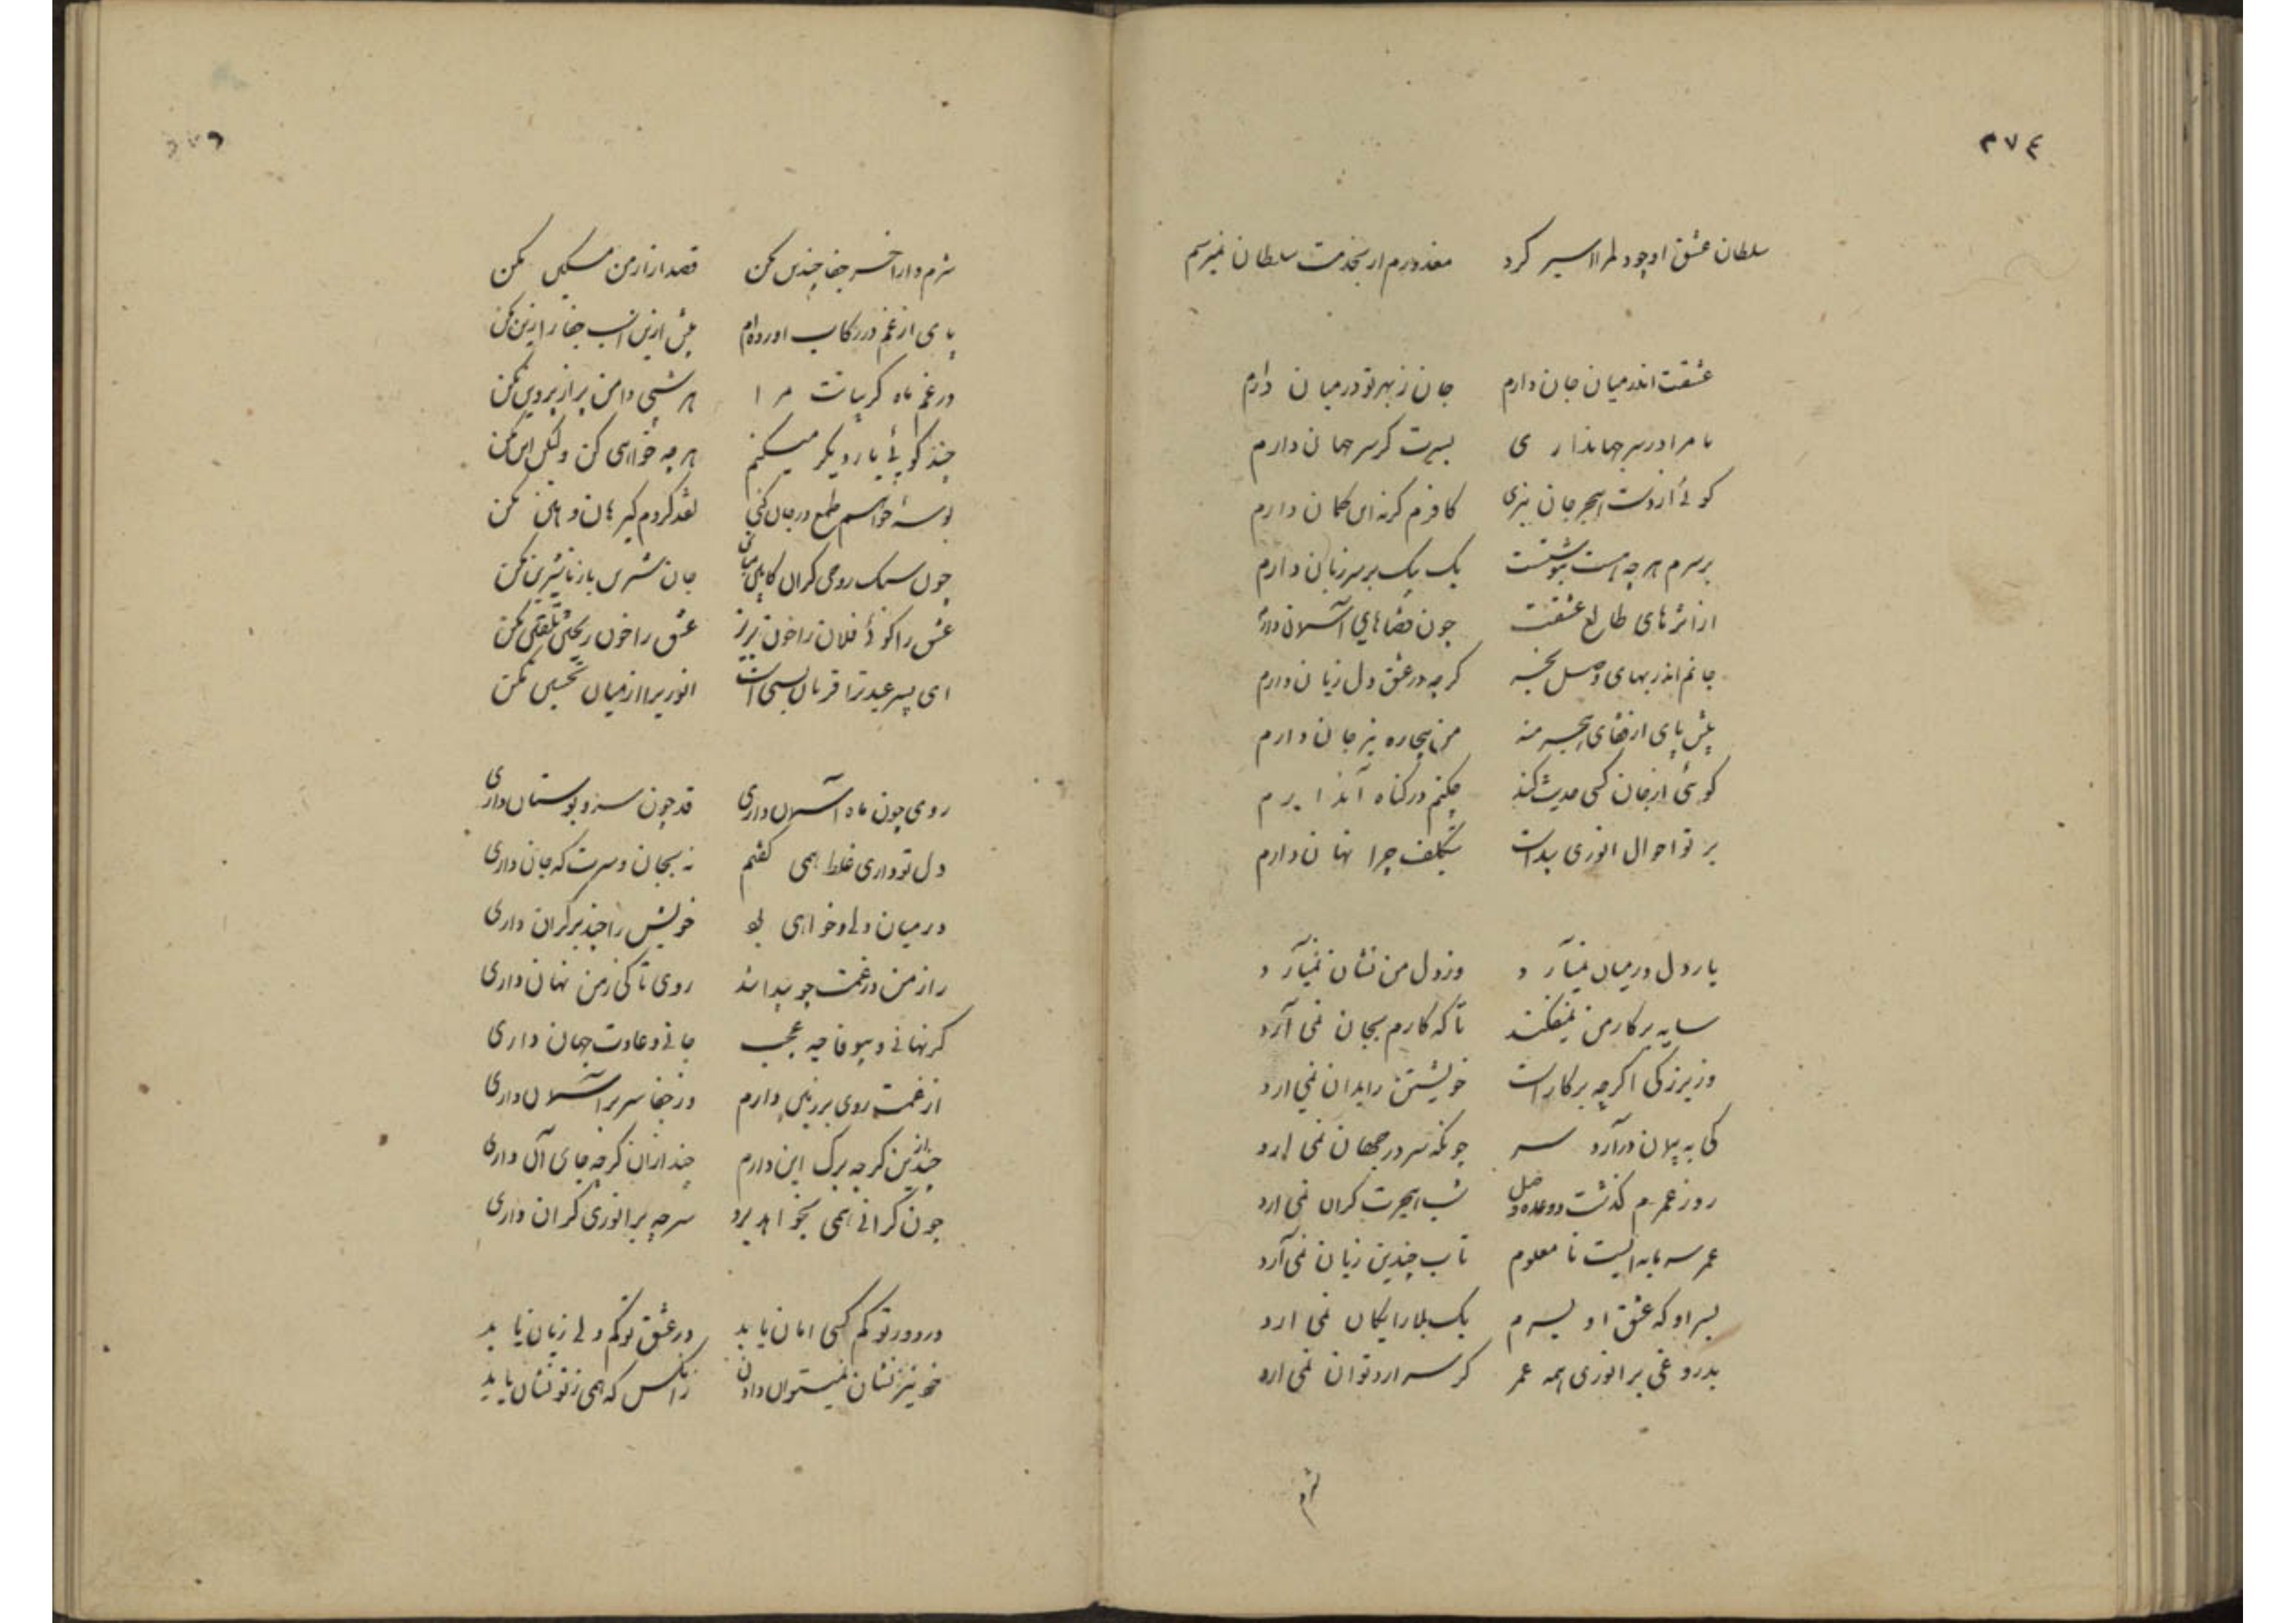 ٣٧٤
سلطان عشق او چو دلم را اسیر کرد معذورم ار بخدمت سلطان نمیرسم
عشقت اندر میان جان دارم جان ز بهر تو در میان دارم
تا مرا در سر جهانداری بسرت کر سر جهان دارم
کوئی از دست هجر جان نبری کافرم کر نه این کمان دارم
بر سرم هرچه هست بنوشتست یک بیک بر سر زبان دارم
از اثرهای طالع عشقت چون قضاهای آسمان دارم
جانم اندر بهای وصل بخر کرچه در عشق دل زیان دارم
پیش پای از قفای هجر منه من بیچاره نیز جان دارم
کوئی از جان کسی حدیث کند چکنم در کناه آن دارم
بر تو احوال انوری پیداست بتکلف چرا نهان دارم
یار دل در میان نمیآرد وز دل من نشان نمیآرد
سایه بر کار من نمیفکند تا که کارم بجان نمی آرد
وز بزرکی اکرچه بر کار است خویشتن را بدان نمی ارد
کی به پیمان درآرد سر چونکه سر در جهان نمی ارد
روز عمرم گذشت و وعده وصل شب هجرت کران نمی ارد
عمر سرمایه ایست نا معلوم تاب چندین زیان نمی آرد
بسر او که عشق او بسرم یک بلا رایکان نمی ارد
بدروغی بر انوری همه عمر کر سر ارد توان نمی ارد
شرم
٣٧٥
شرم دار اخر جفا چندین مکن قصد ازار من مسکین مکن
پای از غم در رکاب اورده ام بیش ازین اسب جفا را زین مکن
در غم ماه کریبانت مرا هر شبی دامن پر از پروین مکن
چند کوئی یار دیکر میکنم هرچه خواهی کن ولیکن این مکن
بوسه خواهم طمع در جان کنی نقد کردم کیر هان و هین مکن
چون سبک روحی کران کابین مباش جان شیرین بار نا شیرین مکن
عشق را کو فلان را خون بریز عشق را خون ریختن تلقین مکن
ای پسر عید ترا قربان بسی است انوریرا از میان تحسین مکن
روی چون ماه آسمان داری قد چون سرو بوستان داری
دل تو داری غلط همی کفتم نه بجان و سرت که جان داری
در میان دلی و خواهی بود خویش را چند بر کران داری
راز من در غمت چو پیدا شد روی تا کی ز من نهان داری
کر نهانی و بیوفا چه عجب جانی و عادت جهان داری
از غمت روی بر زمین دارم وز جفا سر بر آسمان داری
چند ازین کرچه برک این دارم چند ازان کرچه جای آن داری
چون کرانی همی بخواهد برد سر چه بر انوری کران داری
در دور تو کم کسی امان یابد در عشق تو کم دلی زیان یابد
خود نیز نشان نمیتوان دادن زانکس که همی ز تو نشان یابد